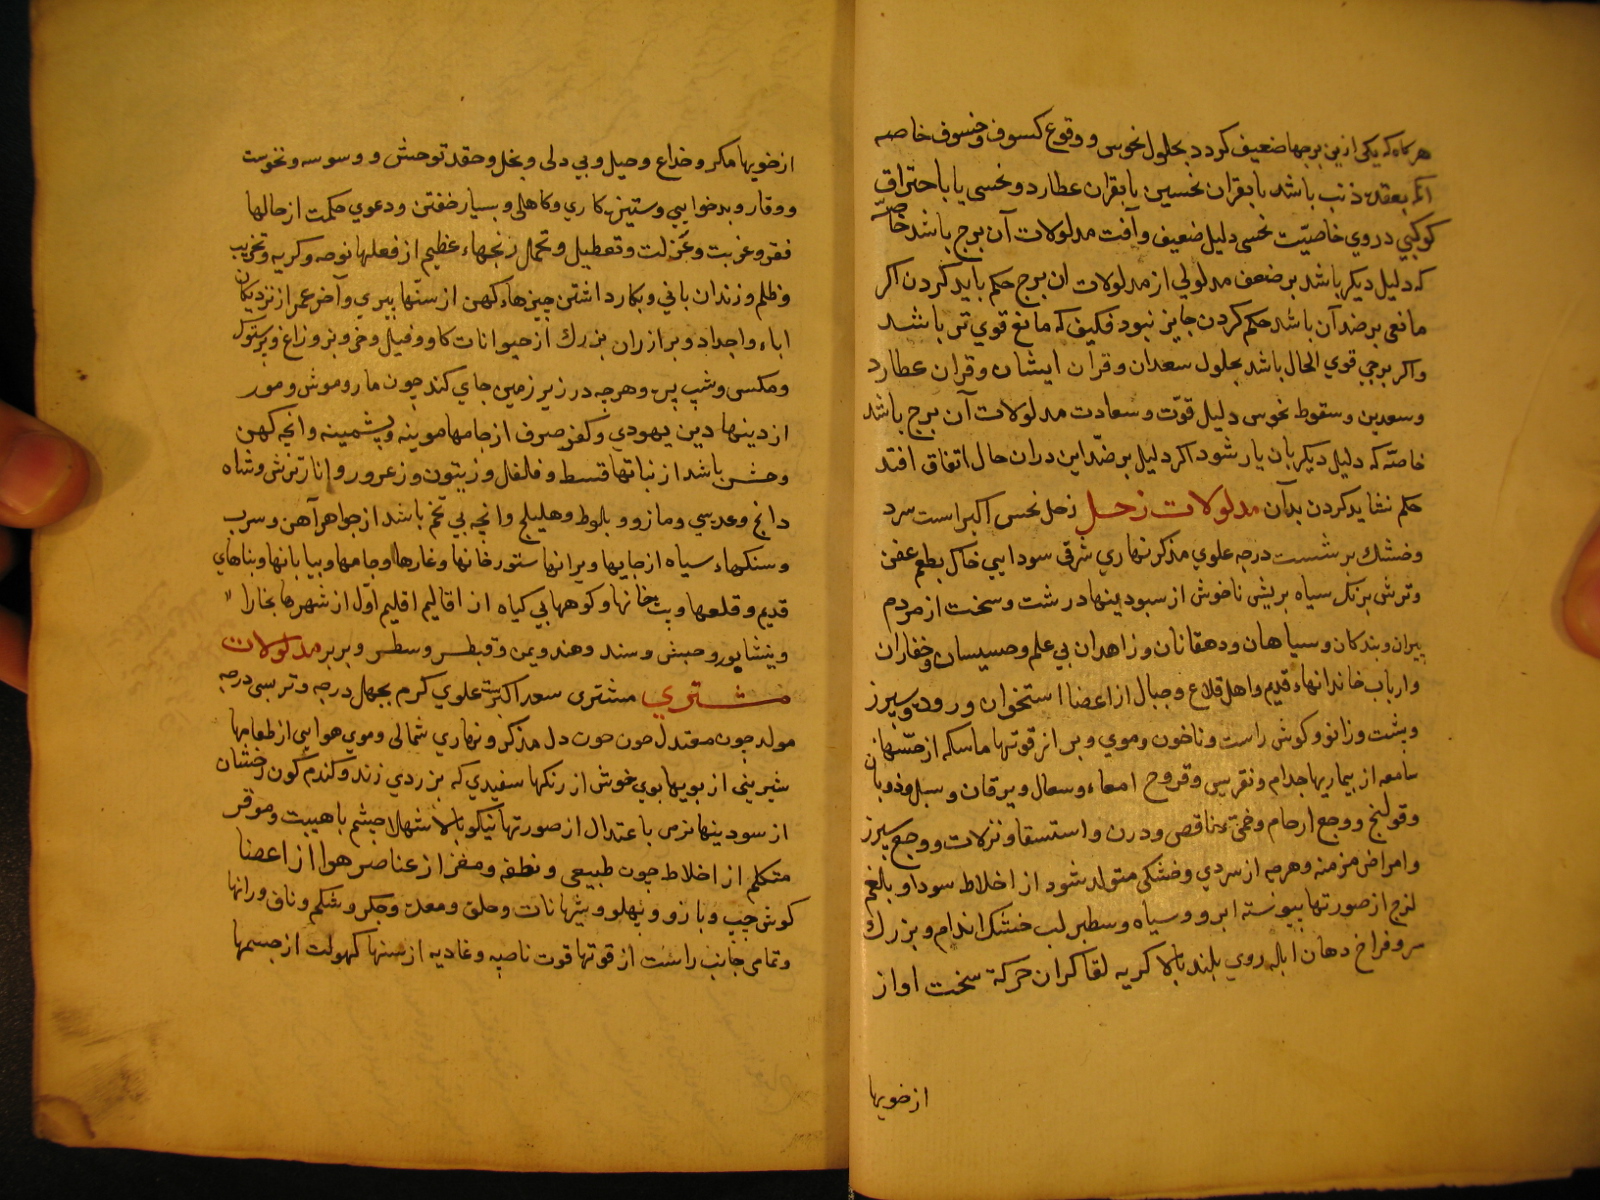 هرگاه که یکی ازین برجها ضعیف گردد بحلول نحوس و وقوع کسوف و خسوف خاصه
انکه بعقده ذنب باشد یا بقران نحسین یا بقران عطارد و نحسی یا باحتراق
کوکبی در وی خاصیّت نحسی دلیل ضعیف و آفت مدلولات آن برج باشد خاصّه
که دلیل دیگر باشد بر ضعف مدلولی از مدلولات ان برج حکم باید کردن اکر
مانعی بر ضد آن باشد حکم کردن جایز نبود فکیف که مانع قوی تر باشد
واکر برجی قوی الحال باشد بحلول سعدان و قران ایشان و قران عطارد
وسعدین وسقوط نحوس دلیل قوّت و سعادت مدلولات آن برج باشد
خاصّه که دلیل دیکر بان یار شود اکر دلیل بر ضدّ این دران حال اتفاق افتد
حکم نشاید کردن بدآن مدلولات زحل زحل نحس اکبر است سرد
وخشک درجه علوی مذکر نهاری شرقی سودایی خاک بطعم عفص
وترش برنک سیاه ناخوش از سودینها درشت و سخت از مردم
پیران و بندکان و سیاهان و دهقانان و زاهدان بی علم و خسیسان و حفاران
وارباب خاندانهاء قدیم واهل قلاع وجبال از اعضا استخوان و روده و سپرز
وپشت وزانو وکوش راست و ناخون وموی و براز قوتها ماسکه از حسّها
سامعه از بیماریها جذام و نقرس وقروح امعاء وسعال ویرقان وسل وذوبان
وقولنج ووجع ارحام وحمّی ودرن واستسقا ونزلات ووجع سپرز
وامراض مزمنه وهرچه از سردی وخشکی متولد شود از اخلاط سودا وبلغم
لزج از صورتها پیوسته ابرو وسیاه وسطبر لب خشک اندام و بزرک
سر وفراخ دهان ابله روی بلند بالا کریه لقا کران حرکة سخت اواز
از خویها
از خویها مکر وخداع وحیل وبی دلی وبخل وحقد توحش و وسوسه ونحوست
ووقار وبدخوایی وستیزه کاری وکاهلی وبسیار خفتن ودعوی حکمت از حالها
فقر وغربت وعزلت وتعطیل وتحمل رنجهاء عظیم از فعلها نوحه وکریه وتخریب
وظلم وزندان بانی وبکار داشتن چیزهاء کهن از سنّها پیری وآخر عمر از نزدیکان
اباء واجداد وبرادران بزرک از حیوانات کاو وفیل وخر وبز وزاغ وپرستوک
ومکس وشب پره وهرچه در زیر زمین جای کند چون مار وموش ومور
از دینها دین یهودی وکفر صرف از جامها موینه وپشمینه وانچه کهن
وخشن باشد از نباتها قسط وفلفل وزیتون وزعرور وانار ترش وشاه
دانج وعدس ومازو وبلوط وهلیلج وانچه بی تخم باشد از جواهر آهن وسرب
وسنکهاء سیاه از جایها ویرانها ستورخانها وغارها وچاهها وبیابانها وبناهای
قدیم وقلعها وبت خانها وکوههاء بی کیاه از اقالیم اقلیم اوّل از شهرها بخارا
ونیشاپور وحبش وسند وهند ویمن وقبط وبربر مدلولات
مشتری مشتری سعد اکبرست علوی کرم بچهل درجه وتر بسی درجه
مولد چون معتدل مذکر ونهاری شمالی وموی هوایی از طعامها
شیرینی از بویها بوی خوش از رنکها سفیدی که بزردی زند وکندم کون رخشان
از سودینها نرمی باعتدال از صورتها نیکو بالا شهلا چشم باهیبت وموقر
متکلم از اخلاط خون طبیعی ونطفه ومغز از عناصر هوا از اعضا
کوش چپ وبازو وپهلو وشریانات وحلق ومعده وجکر وشکم وناف ورانها
وتمامی جانب راست از قوتها قوت نامیه وغادیه از سنها کهولت از جسمها